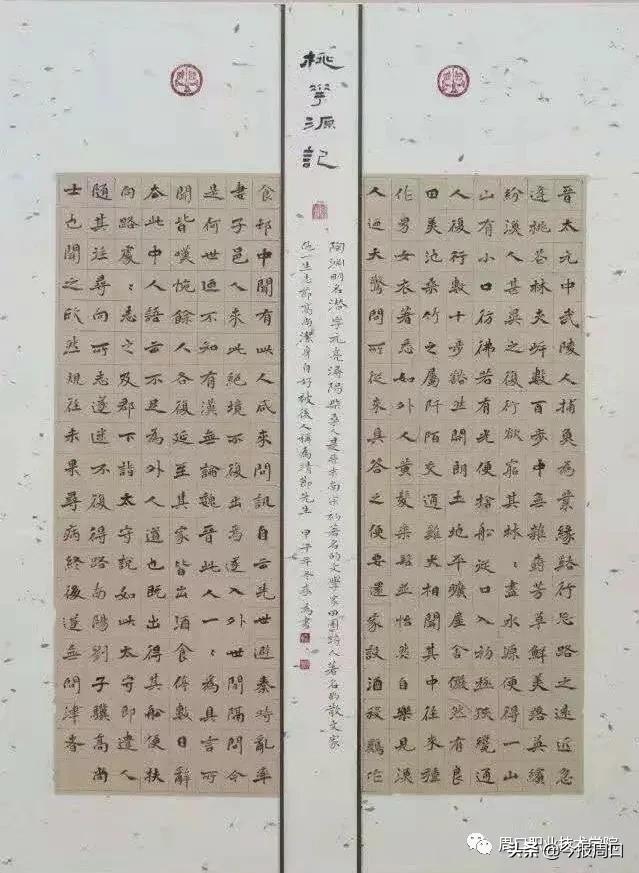 桃華源記
晋太元中武陵人捕魚為業緣谿行忘路之遠近忽
逢桃花林夾岸數百步中無雜樹芳草鮮美落英繽
紛漁人甚異之復行欲窮其林：盡水源便得一山
山有小口彷彿若有光便捨船從口入初極狹纔通
人復行數十步豁然開朗土地平曠屋舍儼然有良
田美池桑竹之屬阡陌交通雞犬相聞其中往來種
作男女衣著悉如外人黃髮垂髫並怡然自樂見漁
人迺大驚問所從來具答之便要還家設酒殺雞作
食邨中聞有此人咸來問訊自云先世避秦時亂率
妻子邑人來此絕境不復出焉遂入外世間隔問今
是何世迺不知有漢無論魏晉此人一：為具言所
聞皆嘆惋餘人各復延至其家皆出酒食停數日辭
去此中人語云不足為外人道也既出得其船便扶
向路處：志之及郡下詣太守說如此太守即遣人
隨其往尋向所志遂迷不復得路南陽劉子驥高尚
士也聞之欣然規往未果尋病終後遂無問津者
陶渊明名潜字元亮潯陽柴桑人是晋末南宋初著名的文學家田園詩人著名的散文家
他一生志節高尚潔身自好被後人稱為靖節先生 甲午年冬 為書
周口职业技术学院
头条 @今报周口